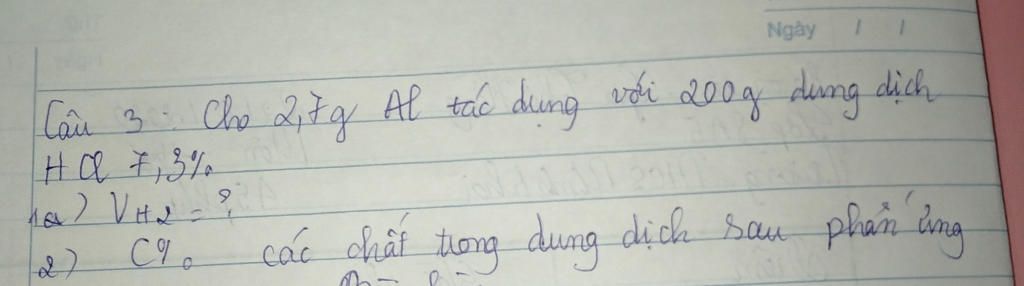 Ngày / /
Câu 3: Cho 2,7g Al tác dụng với 200g dung dịch
HCl 7,3%
1) VH2 = ?
2) C% các chất trong dung dịch sau phản ứng